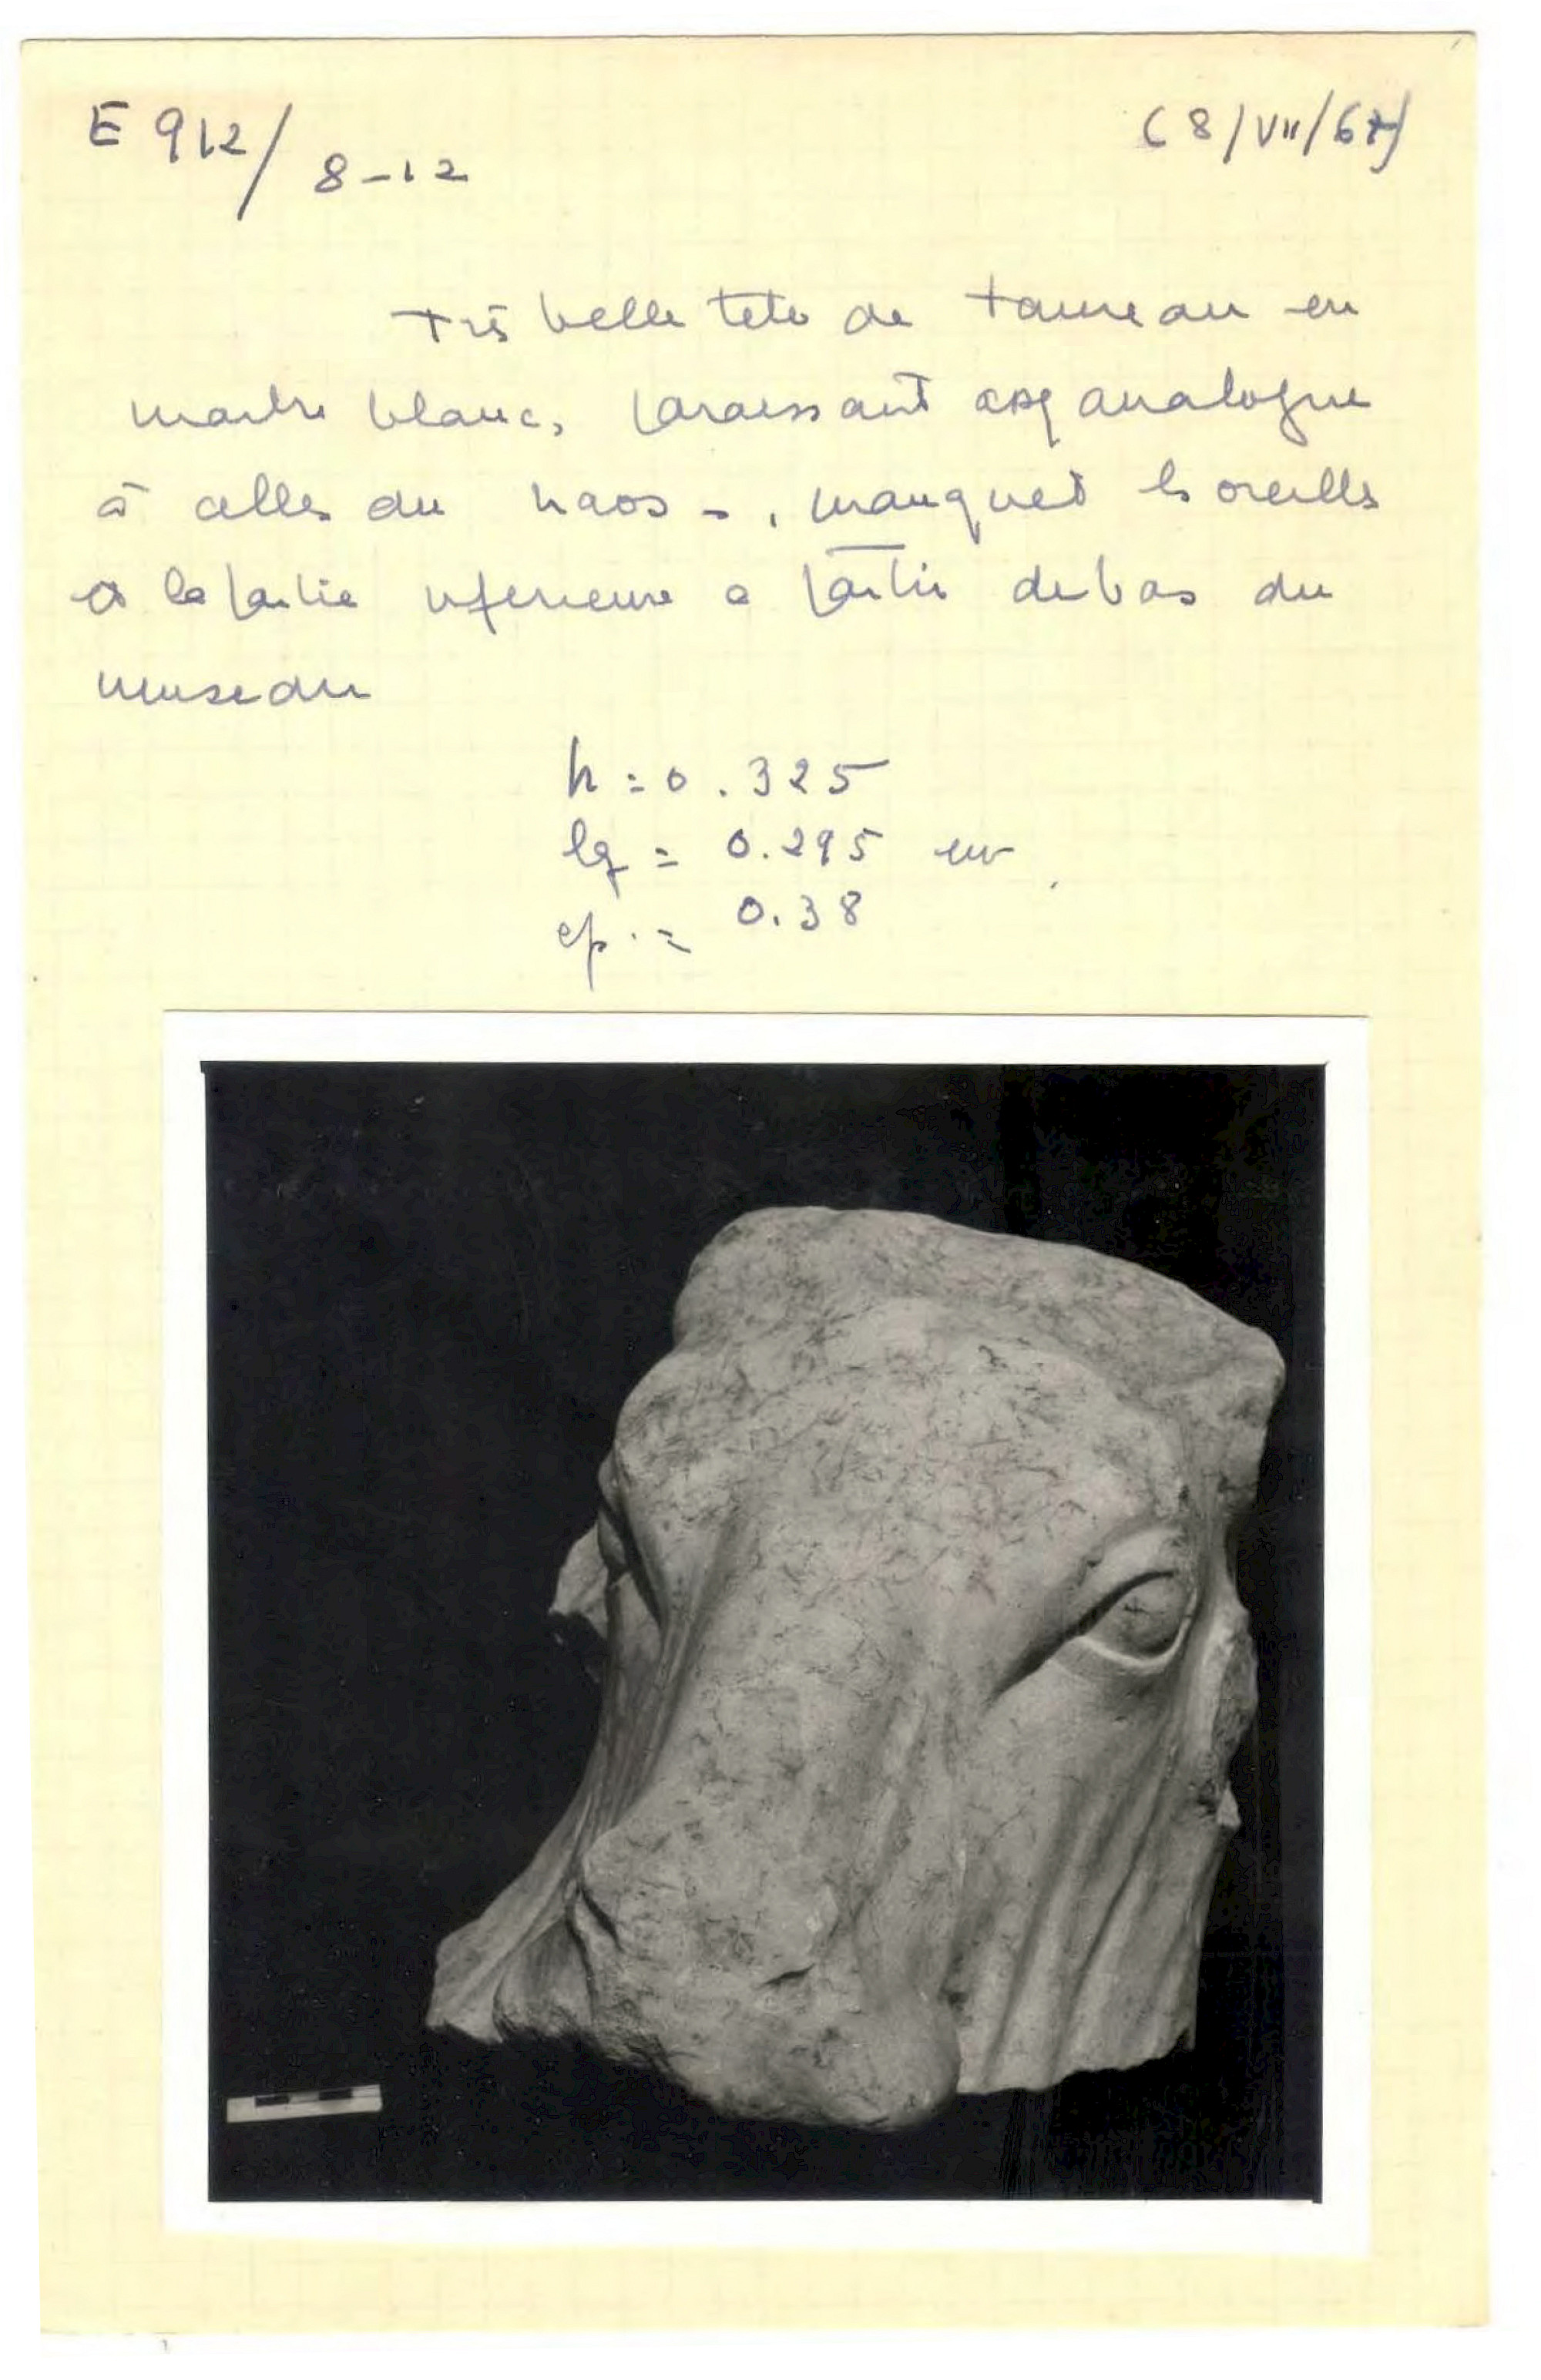 E 912/8-12
(8/VII/67)
Très belle tete de taureau en
marbre blanc, paraissant assez analogue
à celles du naos -, manquent les oreilles
et la partie inférieure a partir du bas du
museau
h = 0.325
lg = 0.295 env.
ep. = 0.38